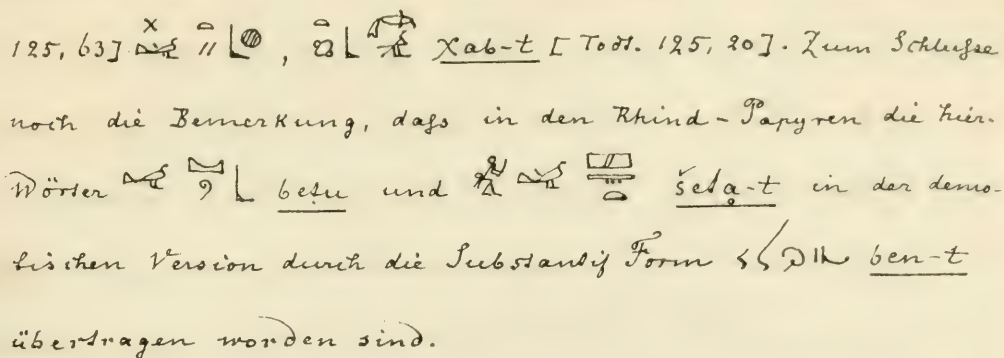 125, 63] , Xab-t [Todt. 125, 20]. Zum Schlusse
noch die Bemerkung, dass in den Rhind-Papyren die hier-
Wörter beṭu und šeta-t in der demo-
tischen Version durch die Substantif Form ben-t
übertragen worden sind.